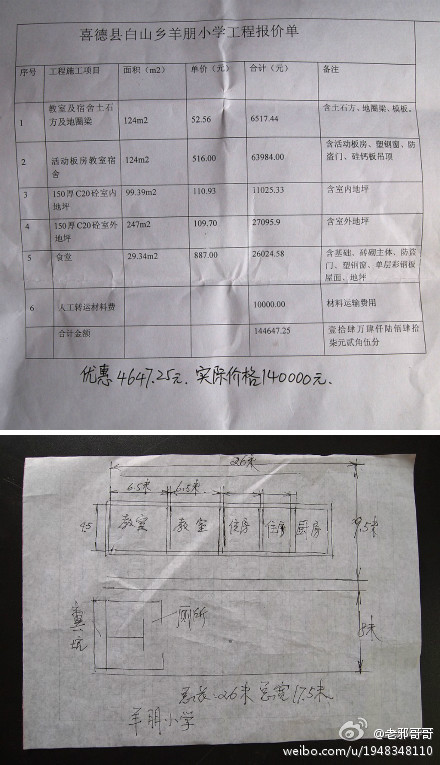 喜德县白山乡羊朋小学工程报价单
序号 工程施工项目 面积(m2) 单价(元) 合计(元) 备注
1 教室及宿舍土石方及地圈梁 124m2 52.56 6517.44 含土石方、地圈梁、模板。
2 活动板房教室宿舍 124m2 516.00 63984.00 含活动板房、塑钢窗、防盗门、硅钙板吊顶
3 150厚C20砼室内地坪 99.39m2 110.93 11025.33 含室内地坪
4 150厚C20砼室外地坪 247m2 109.70 27095.9 含室外地坪
5 食堂 29.34m2 887.00 26024.58 含基础、砖砌主体、防盗门、塑钢窗、单层彩钢板屋面、地坪
6 人工转运材料费 10000.00 材料运输费用
合计金额 144647.25 壹拾肆万肆仟陆佰肆拾柒元贰角伍分
优惠4647.25元.实际价格140000元.
26米
6.5米 6.5米
教室 教室 住房 住房 厨房
9.5米
厕所
粪坑
8米
总长26米 总宽17.5米
羊朋小学
@老邪哥哥
weibo.com/u/1948348110